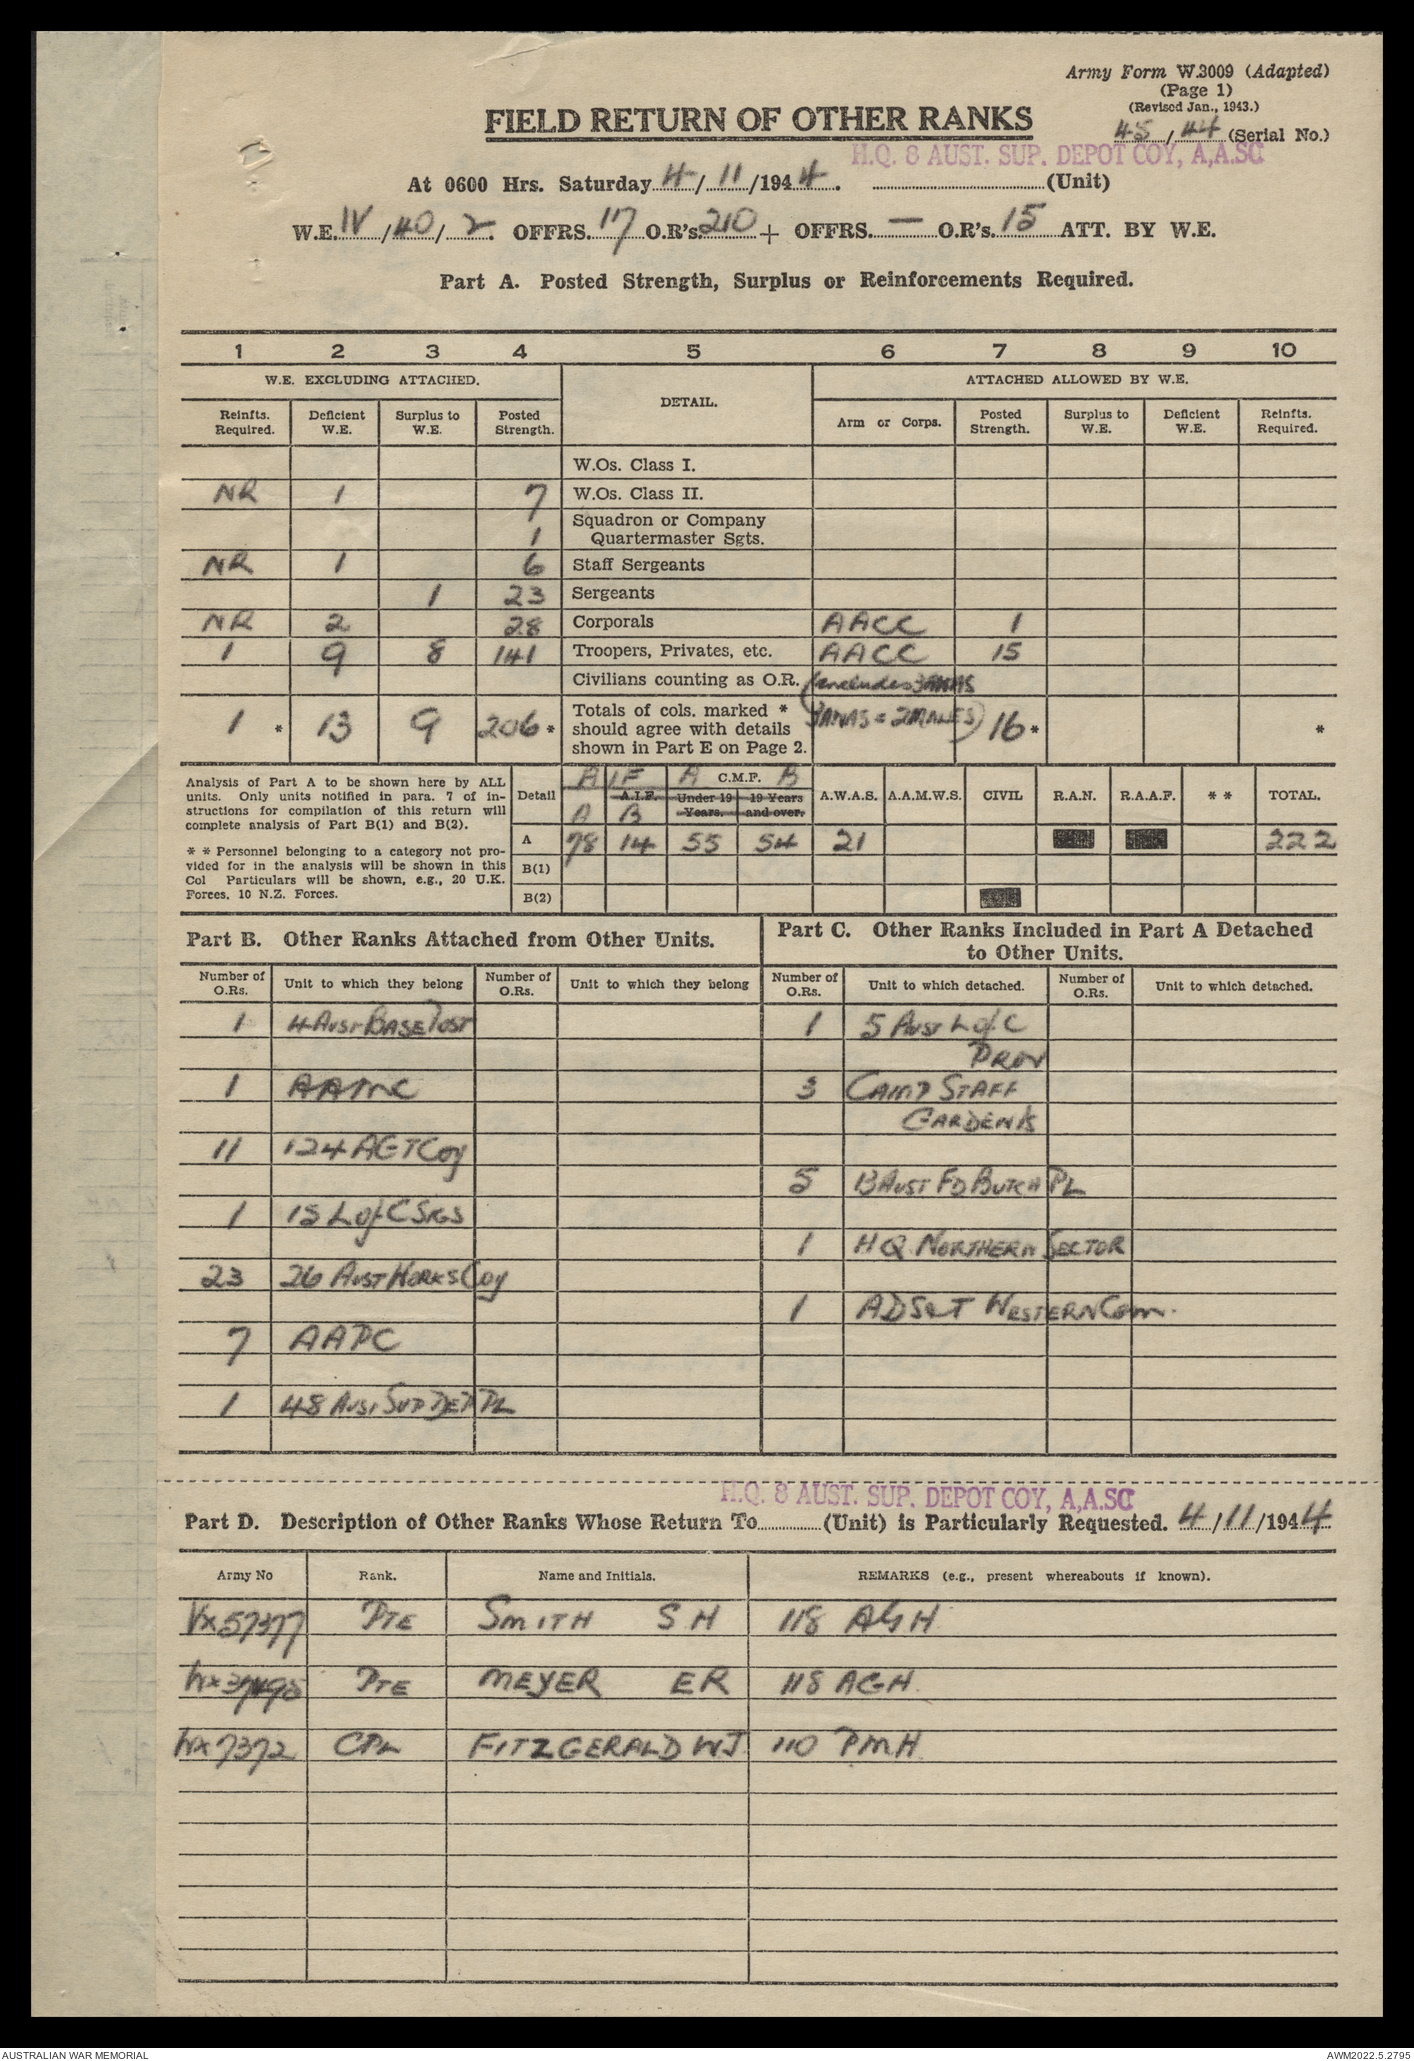 Army Form W.3009 (Adapted)
(Page 1)
(Revised Jan., 1943.)
FIELD RETURN OF OTHER RANKS
45/44 (Serial No.)
H.Q. 8 AUST. SUP. DEPOT COY, A.A.SC
At 0600 Hrs. Saturday 4/11/1944. (Unit)
W.E. IV/40/2. OFFRS. 17 O.R's. 210 + OFFRS. — O.R's. 15 ATT. BY W.E.
Part A. Posted Strength, Surplus or Reinforcements Required.
1 2 3 4 5 6 7 8 9 10
W.E. EXCLUDING ATTACHED. DETAIL. ATTACHED ALLOWED BY W.E.
Reinfts. Required. Deficient W.E. Surplus to W.E. Posted Strength. Arm or Corps. Posted Strength. Surplus to W.E. Deficient W.E. Reinfts. Required.
W.Os. Class I.
NR 1 7 W.Os. Class II.
1 Squadron or Company
Quartermaster Sgts.
NR 1 6 Staff Sergeants
1 23 Sergeants
NR 2 28 Corporals AACC 1
1 9 8 141 Troopers, Privates, etc. AACC 15
Civilians counting as O.R. (includes 3 AWAS
1 * 13 9 206 * Totals of cols. marked * 3 AWAS = 2 MALES) 16 * *
should agree with details
shown in Part E on Page 2.
Analysis of Part A to be shown here by ALL
units. Only units notified in para. 7 of in-
structions for compilation of this return will
complete analysis of Part B(1) and B(2).
* * Personnel belonging to a category not pro-
vided for in the analysis will be shown in this
Col Particulars will be shown, e.g., 20 U.K.
Forces, 10 N.Z. Forces.
Detail AIF A C.M.F. B
A.I.F. Under 19 Years. 19 Years and over. A.W.A.S. A.A.M.W.S. CIVIL R.A.N. R.A.A.F. * * TOTAL.
A B
A 78 14 55 54 21 222
B(1)
B(2)
Part B. Other Ranks Attached from Other Units.
Number of O.Rs. Unit to which they belong Number of O.Rs. Unit to which they belong
1 4 Aust Base Post
1 AAMC
11 124 AGT Coy
1 15 L of C Sigs
23 26 Aust Works Coy
7 AAPC
1 48 Aust Sup Dep Pl
Part C. Other Ranks Included in Part A Detached
to Other Units.
Number of O.Rs. Unit to which detached. Number of O.Rs. Unit to which detached.
1 5 Aust L of C
Prov
3 Camp Staff
Gardens
5 13 Aust Fd Butch Pl
1 HQ Northern Sector
1 ADS&T Western Com.
H.Q. 8 AUST. SUP. DEPOT COY, A.A.SC
Part D. Description of Other Ranks Whose Return To (Unit) is Particularly Requested. 4/11/1944
Army No Rank. Name and Initials. REMARKS (e.g., present whereabouts if known).
VX57377 Pte SMITH S H 118 AGH
Pte MEYER ER 118 AGH.
WX7372 CPL FITZGERALD WJ 110 PMH
AUSTRALIAN WAR MEMORIAL
AWM2022.5.2795